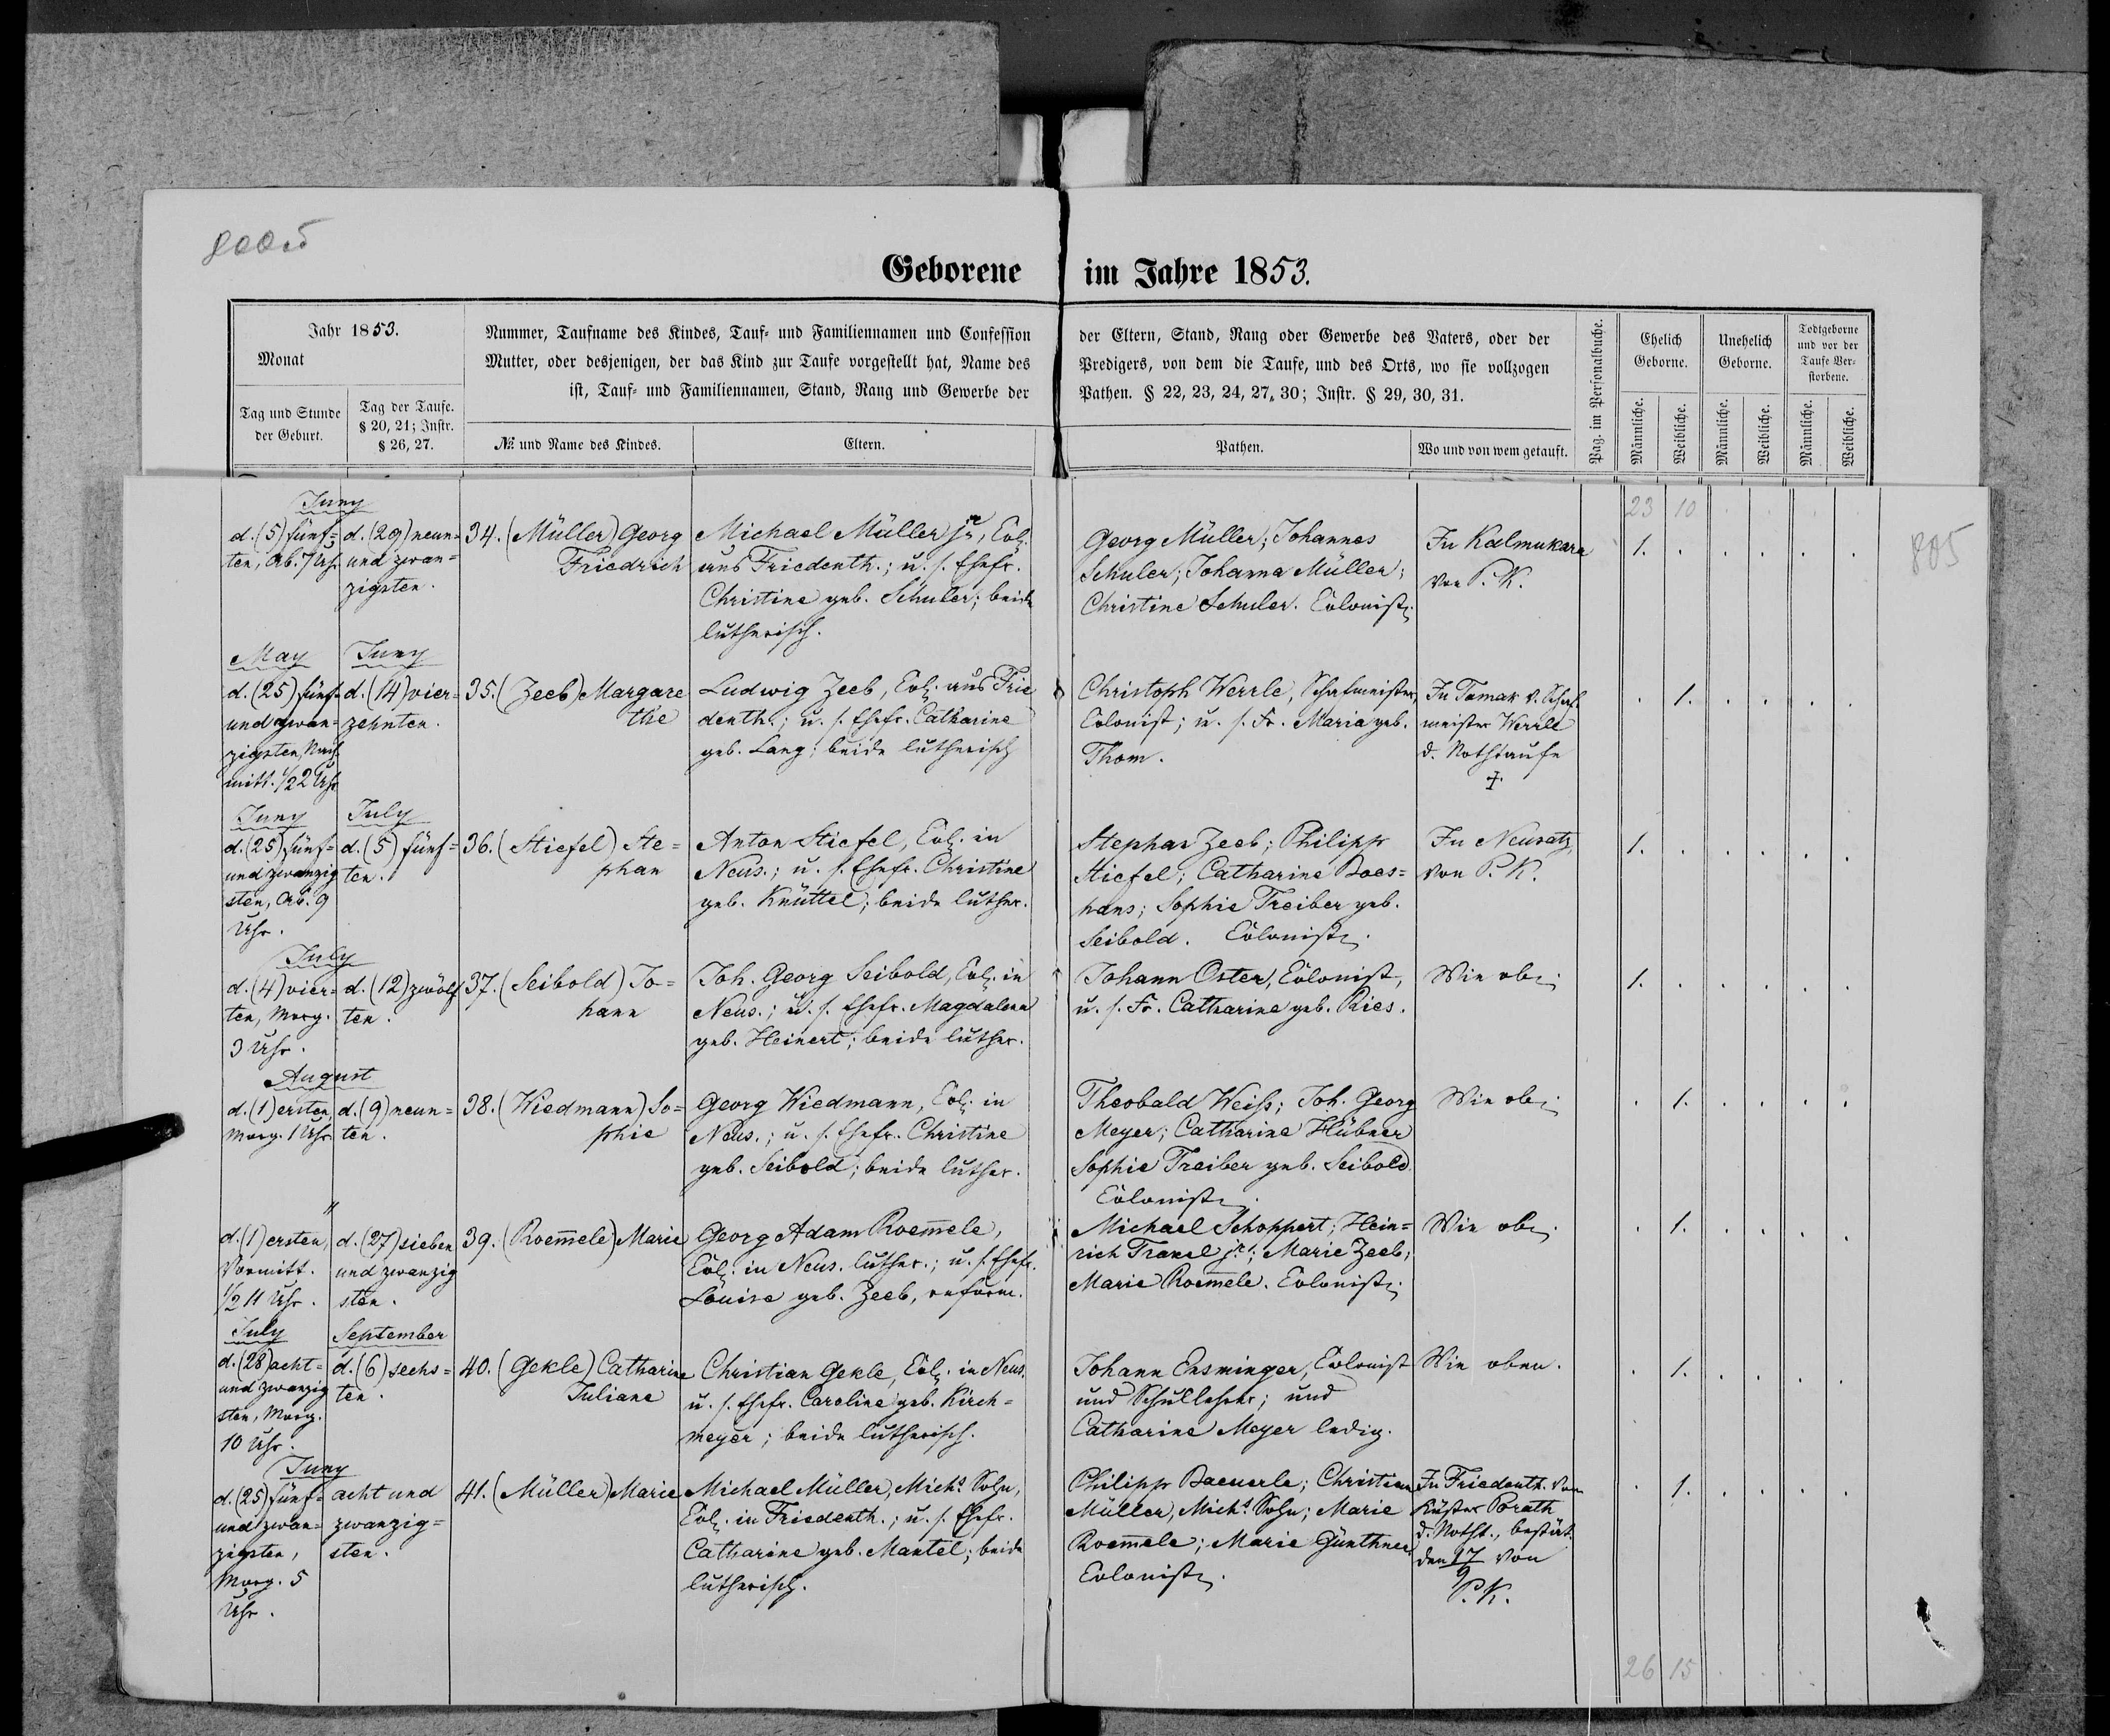 Geborene im Jahre 1853.
Jahr 1853.
Monat
Tag und Stunde
der Geburt.
Tag der Taufe.
§ 20, 21; Instr.
§ 26, 27.
Nummer, Taufname des Kindes, Tauf- und Familiennamen und Confession
Mutter, oder desjenigen, der das Kind zur Taufe vorgestellt hat, Name des
ist, Tauf- und Familiennamen, Stand, Rang und Gewerbe der
№ und Name des Kindes.
Eltern.
der Eltern, Stand, Rang oder Gewerbe des Vaters, oder der
Predigers, von dem die Taufe, und des Orts, wo sie vollzogen
Pathen. § 22, 23, 24, 27, 30; Instr. § 29, 30, 31.
Pathen.
Wo und von wem getauft.
Pag. im Personalbuche.
Ehelich
Geborne.
Unehelich
Geborne.
Todtgeborne
und vor der
Taufe Ver-
storbene.
Männliche.
Weibliche.
Männliche.
Weibliche.
Männliche.
Weibliche.
23 10
805
Juny
d. (5) fünf=
ten, Ab. 7 Uhr
d. (29) neun=
und zwan=
zigsten.
34. (Müller) Georg
Friedrich
Michael Müller jr, Col.
aus Friedenth.; u. s. Ehefr.
Christine geb. Schuler; beide
lutherisch.
Georg Müller; Johannes
Schuler; Johanna Müller;
Christine Schuler. Colonist.
In Kalmukara
von P. K.
1.
May
d. (25) fünf=
und zwan=
zigsten, Nach
mitt. 1/2 2 Uhr
Juny
d. (14) vier=
zehnten.
35. (Zeeb) Margare
the
Ludwig Zeeb, Col. aus Frie
denth.; u. s. Ehefr. Catharine
geb. Lang; beide lutherisch
Christoph Werrle, Schafmeister,
Colonist; u. s. Fr. Maria geb.
Thom.
In Tamak v. Schaf
meister Werrle
d. Nothtaufe
+
1.
Juny
d. (25) fünf=
und zwanzig
sten, Ab. 9
Uhr.
July
d. (5) fünf=
ten.
36. (Stiefel) Ste=
phan
Anton Stiefel, Col. in
Neus.; u. s. Ehefr. Christine
geb. Knüttel; beide luther.
Stephan Zeeb; Philipp
Stiefel; Catharine Boes=
hans; Sophie Treiber geb.
Seibold. Colonist.
In Neusatz,
von P. K.
1.
July
d. (4) vier=
ten, Morg.
3 Uhr.
d. (12) zwölf
ten.
37. (Seibold) Jo=
hann
Joh. Georg Seibold, Col. in
Neus.; u. s. Ehefr. Magdalena
geb. Heinert; beide luther.
Johann Oster, Colonist,
u. s. Fr. Catharine geb. Ries.
Wie oben.
1.
August
d. (1) ersten,
Morg. 1 Uhr
d. (9) neun=
ten.
38. (Wiedmann) So=
phie
Georg Wiedmann, Col. in
Neus.; u. s. Ehefr. Christine
geb. Seibold; beide luther.
Theobald Weiß; Joh. Georg
Meyer; Catharine Hübner
Sophie Treiber geb. Seibold.
Colonist.
Wie oben.
1.
"
d. (1) ersten,
Vormitt.
1/2 11 Uhr.
d. (27) sieben
und zwanzig
sten.
39. (Roem̄ele) Marie
Georg Adam Roem̄ele,
Col. in Neus. luther.; u. s. Ehefr.
Louise geb. Zeeb, reform.
Michael Schoppert; Hein=
rich Trankl jr.; Marie Zeeb;
Marie Roem̄ele. Colonist.
Wie oben.
1.
July
d. (28) acht=
und zwanzig
sten, Morg.
10 Uhr.
September
d. (6) sechs=
ten.
40. (Gekle) Catharine
Juliane
Christian Gekle, Col. in Neus.
u. s. Ehefr. Caroline geb. Kirch=
meyer; beide lutherisch.
Johann Ensminger, Colonist
und Schullehrer; und
Catharine Meyer ledig.
Wie oben.
1.
Juny
d. (25) fünf=
und zwan=
zigsten,
Morg. 5
Uhr.
acht und
zwanzig=
sten.
41. (Müller) Marie
Michael Müller, Mich.s Sohn,
Col. in Friedenth.; u. s. Ehefr.
Catharine geb. Mantel; beide
lutherisch.
Philipp Baeuerle; Christian
Müller, Mich.s Sohn; Marie
Roem̄ele; Marie Günthner
Colonist.
In Friedenth. vom
Küster Porath
d. Notht., bestät.
den 17/9 von
P. K.
1.
26 15